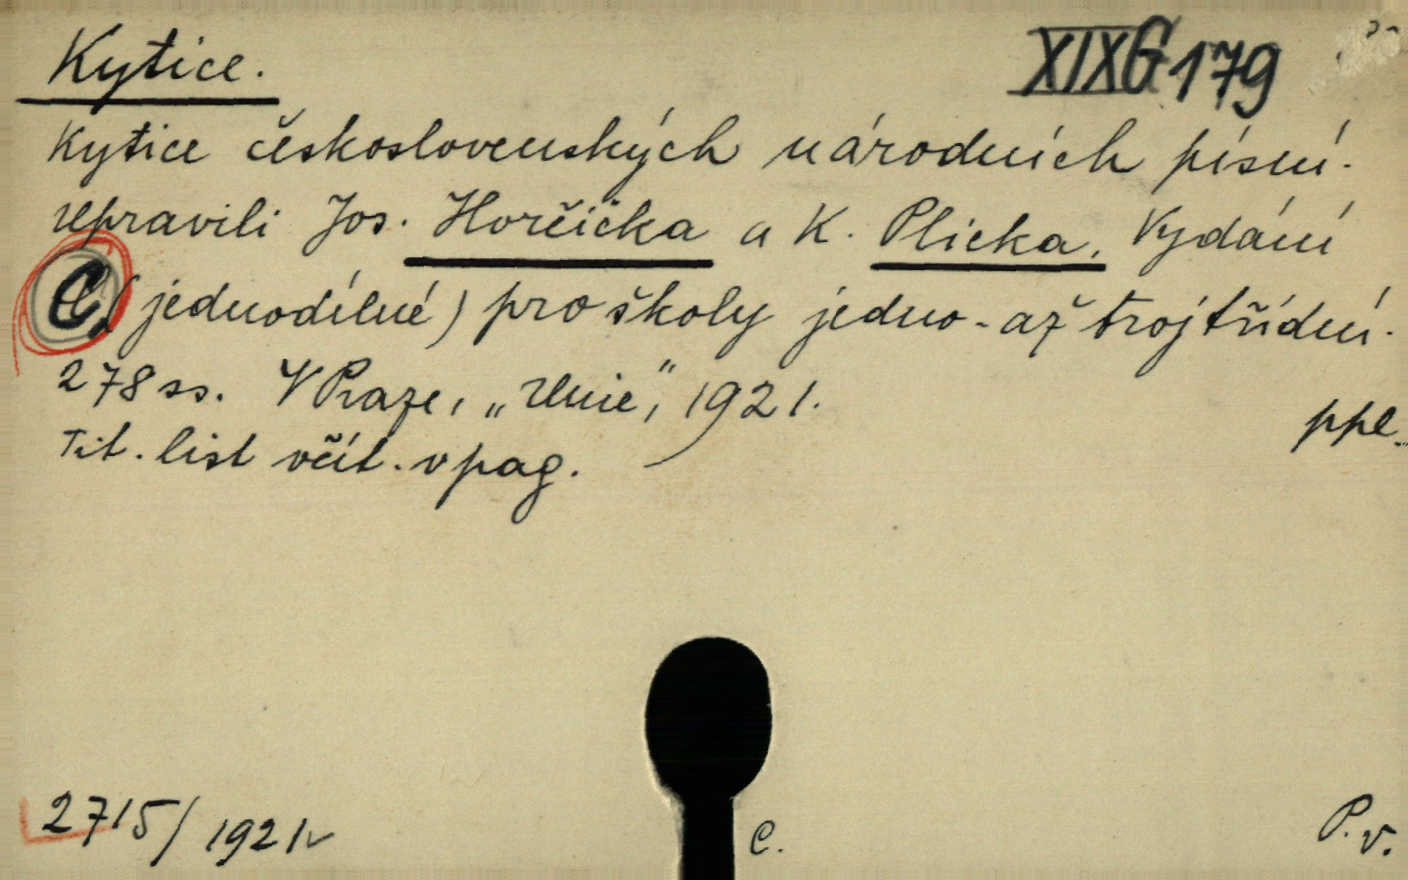 Kytice. XIX G 179
Kytice československých národních písní.
Upravili Jos. Horčička a K. Plicka. Vydání
C, (jednodílné) pro školy jedno-až trojtřídní.
278 ss. V Praze, „Unie“, 1921.
ppl.
Tit. list včít. v pag.
2715/1921
C.
P. v.